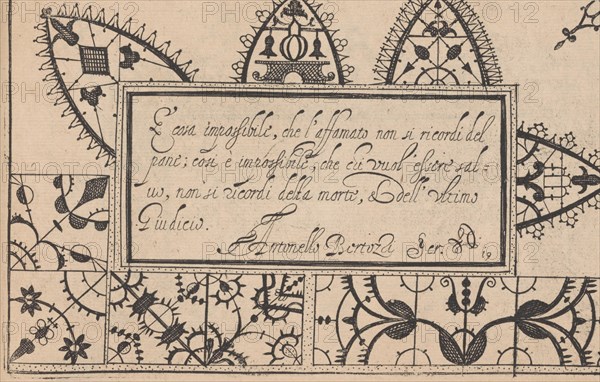 È cosa impossibile, che l'affamato non si ricordi del
pane; così è impossibile, che chi vuol' essere sal-
uo, non si ricordi della morte, & dell' vltimo
Giudicio.
Antonello Bertozzi
19